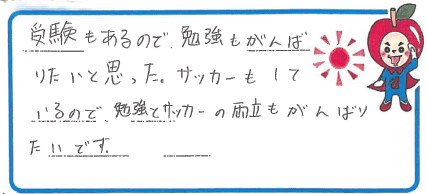 受験もあるので、勉強もがんば
りたいと思った。サッカーもして
いるので、勉強とサッカーの両立もがんばり
たいです。